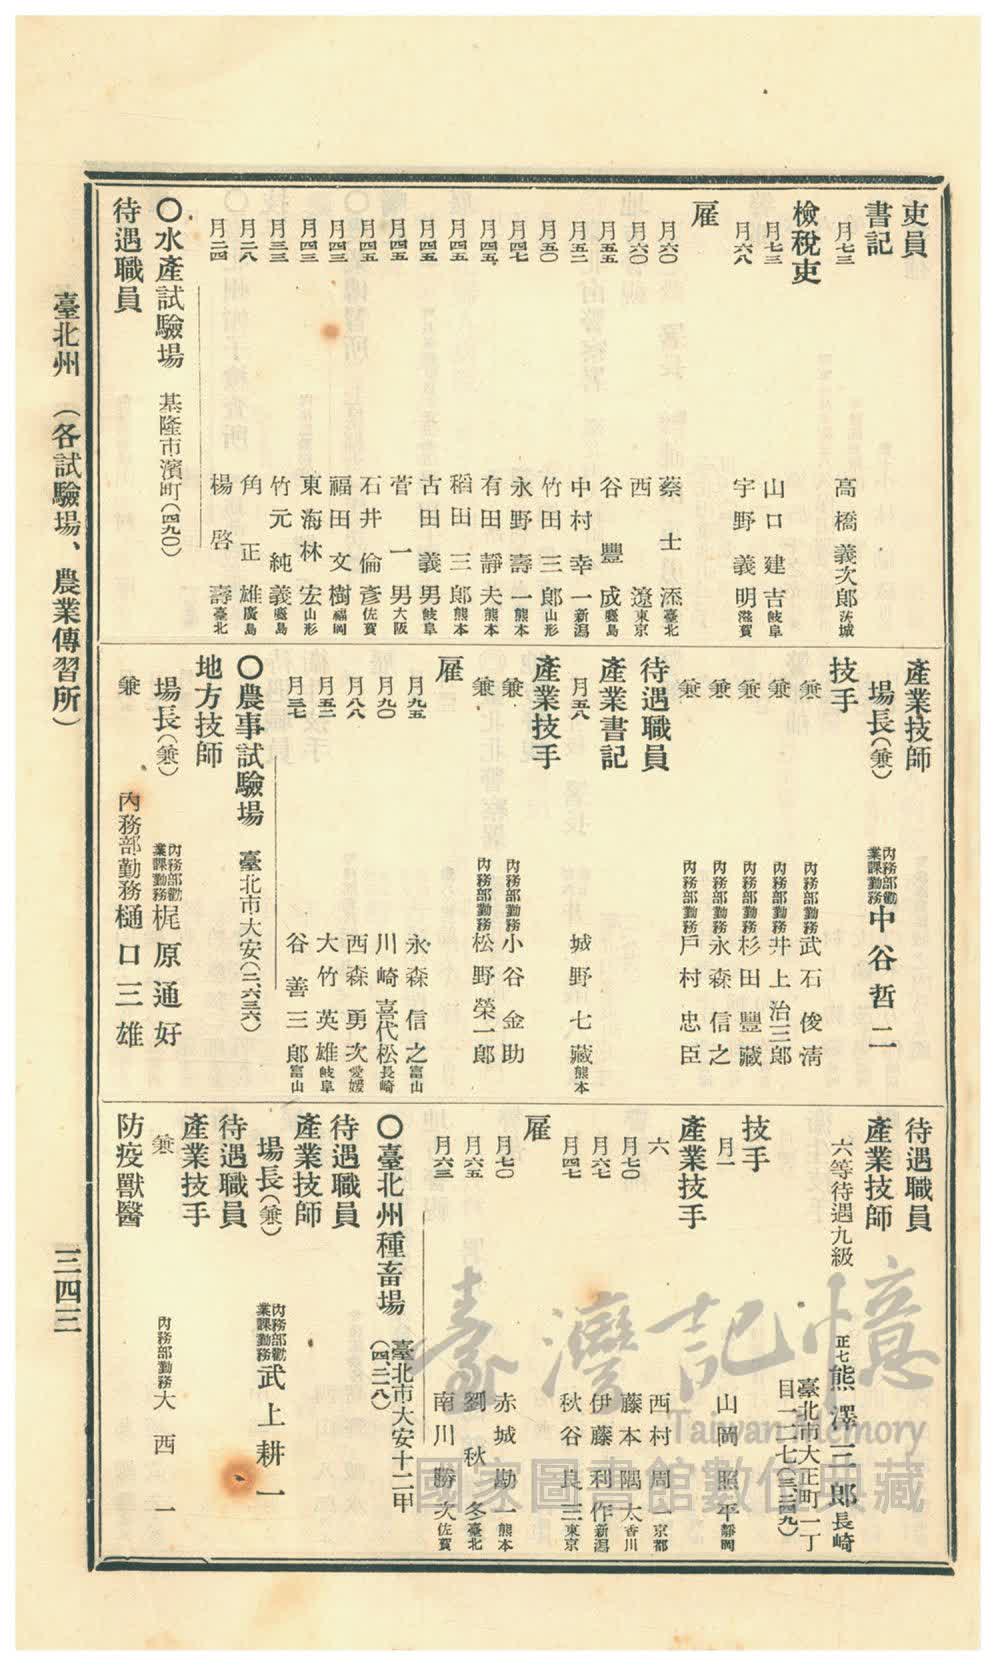 吏員
書記
月七三 高橋義次郎 茨城
檢稅吏
月七三 山口建吉 岐阜
月六八 宇野義明 滋賀
雇
月六〇 蔡士添 臺北
月六〇 西遼 東京
月五五 谷豐成 廣島
月五二 中村幸一 新潟
月五〇 竹田三郎 山形
月四七 永野壽一 熊本
月四五 有田靜夫 熊本
月四五 稻田三郎 熊本
月四五 古田義男 岐阜
月四五 菅一男 大阪
月四五 石井倫彥 佐賀
月四三 福田文樹 福岡
月四三 東海林宏 山形
月三三 竹元純義 廣島
月二八 角正雄 廣島
月二四 楊啓壽 臺北
〇水產試驗場 基隆市濱町(四九〇)
待遇職員
產業技師
場長(兼) 內務部勸業課勤務 中谷哲二
技手
兼 內務部勤務 武石俊淸
兼 內務部勤務 井上治三郎
兼 內務部勤務 杉田豐藏
兼 內務部勤務 永森信之
兼 內務部勤務 戶村忠臣
待遇職員
產業書記
月五八 城野七藏 熊本
產業技手
兼 內務部勤務 小谷金助
兼 內務部勤務 松野榮一郎
雇
月九五 永森信之 富山
月九〇 川崎喜代松 長崎
月八八 西森勇次 愛媛
月五二 大竹英雄 岐阜
月三七 谷善三郎 富山
〇農事試驗場 臺北市大安(二、六三六)
地方技師
場長(兼) 內務部勸業課勤務 梶原通好
兼 內務部勤務 樋口三雄
待遇職員
產業技師
六等待遇九級 正七 熊澤三郎 長崎
臺北市大正町一丁
目一二七(三、二四九)
技手
月一 山岡照平 靜岡
產業技手
六 西村周一 京都
月七〇 藤本隅太 香川
月六七 伊藤利作 新潟
月四七 秋谷良三 東京
雇
月七〇 赤城勘一 熊本
月六五 劉秋冬 臺北
月六三 南川勝次 佐賀
〇臺北州種畜場 臺北市大安十二甲
(四、二二八)
待遇職員
產業技師
場長(兼) 內務部勸業課勤務 武上耕一
待遇職員
產業技手
兼 內務部勤務 大西一
防疫獸醫
臺北州 (各試驗場、農業傳習所)
三四三
臺灣記憶
Taiwan Memory
國家圖書館數位典藏